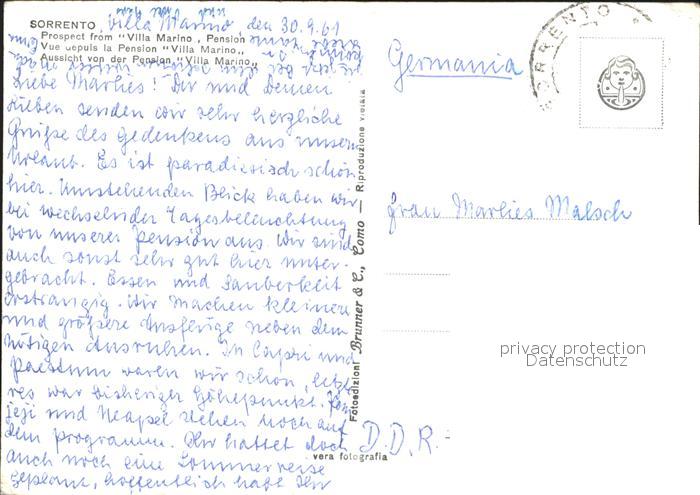 SORRENTO
Villa Marino, den 30.9.61
Prospect from "Villa Marino, Pension
Vue depuis la Pension "Villa Marino"
Aussicht von der Pension "Villa Marino"
Liebe Marlies! Dir und Deinen
Lieben senden wir sehr herzliche
Grüße des Gedenkens aus unserm
Urlaub. Es ist paradiesisch schön
hier. Umstehenden Blick haben wir
bei wechselnder Tagesbeleuchtung
von unserer Pension aus. Wir sind
auch sonst sehr gut hier unter-
gebracht. Essen und Sauberkeit
erstrangig. Wir machen kleinere
und größere Ausflüge neben dem
nötigen Ausruhen. In Capri und
Paestum waren wir schon, letz-
res war bisheriger Höhepunkt. Pom-
jeji und Neapel stehen noch auf
dem Programm. Ihr hattet doch
auch noch eine Sommerreise
geplant, hoffentlich habt Ihr
Fotoedizioni Brunner & C., Como — Riproduzione vietata
vera fotografia
SORRENTO
Germania
Frau Marlies Malsch
D.D.R.
privacy protection
Datenschutz